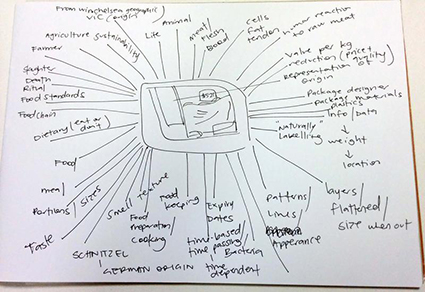 From Winchelsea geographic
VIC / origin
Agriculture
Sustainability
Life
Animal
meat/
Flesh
Blood
Cells
Fat
tendon
human reaction
to raw meat
Value per kg
reduction (price +
quality)
Representation of
origin
Package designer
package materials
plastics
Info / Data
"Naturally"
Labelling
weight
location
layers/
flattened/
size when out
patterns/
Lines
Apperance
Expiry
Dates
time-based/
time passing/
Bacteria
time
dependent
Food
keeping
Food
preparation/
cooking
GERMAN ORIGIN
SCHNITZEL
Smell
texture
Sizes
Taste
Portions
men/
Food
Dietary
eat or
don't
Food chain
Food standards
Ritual
Death
Farmer